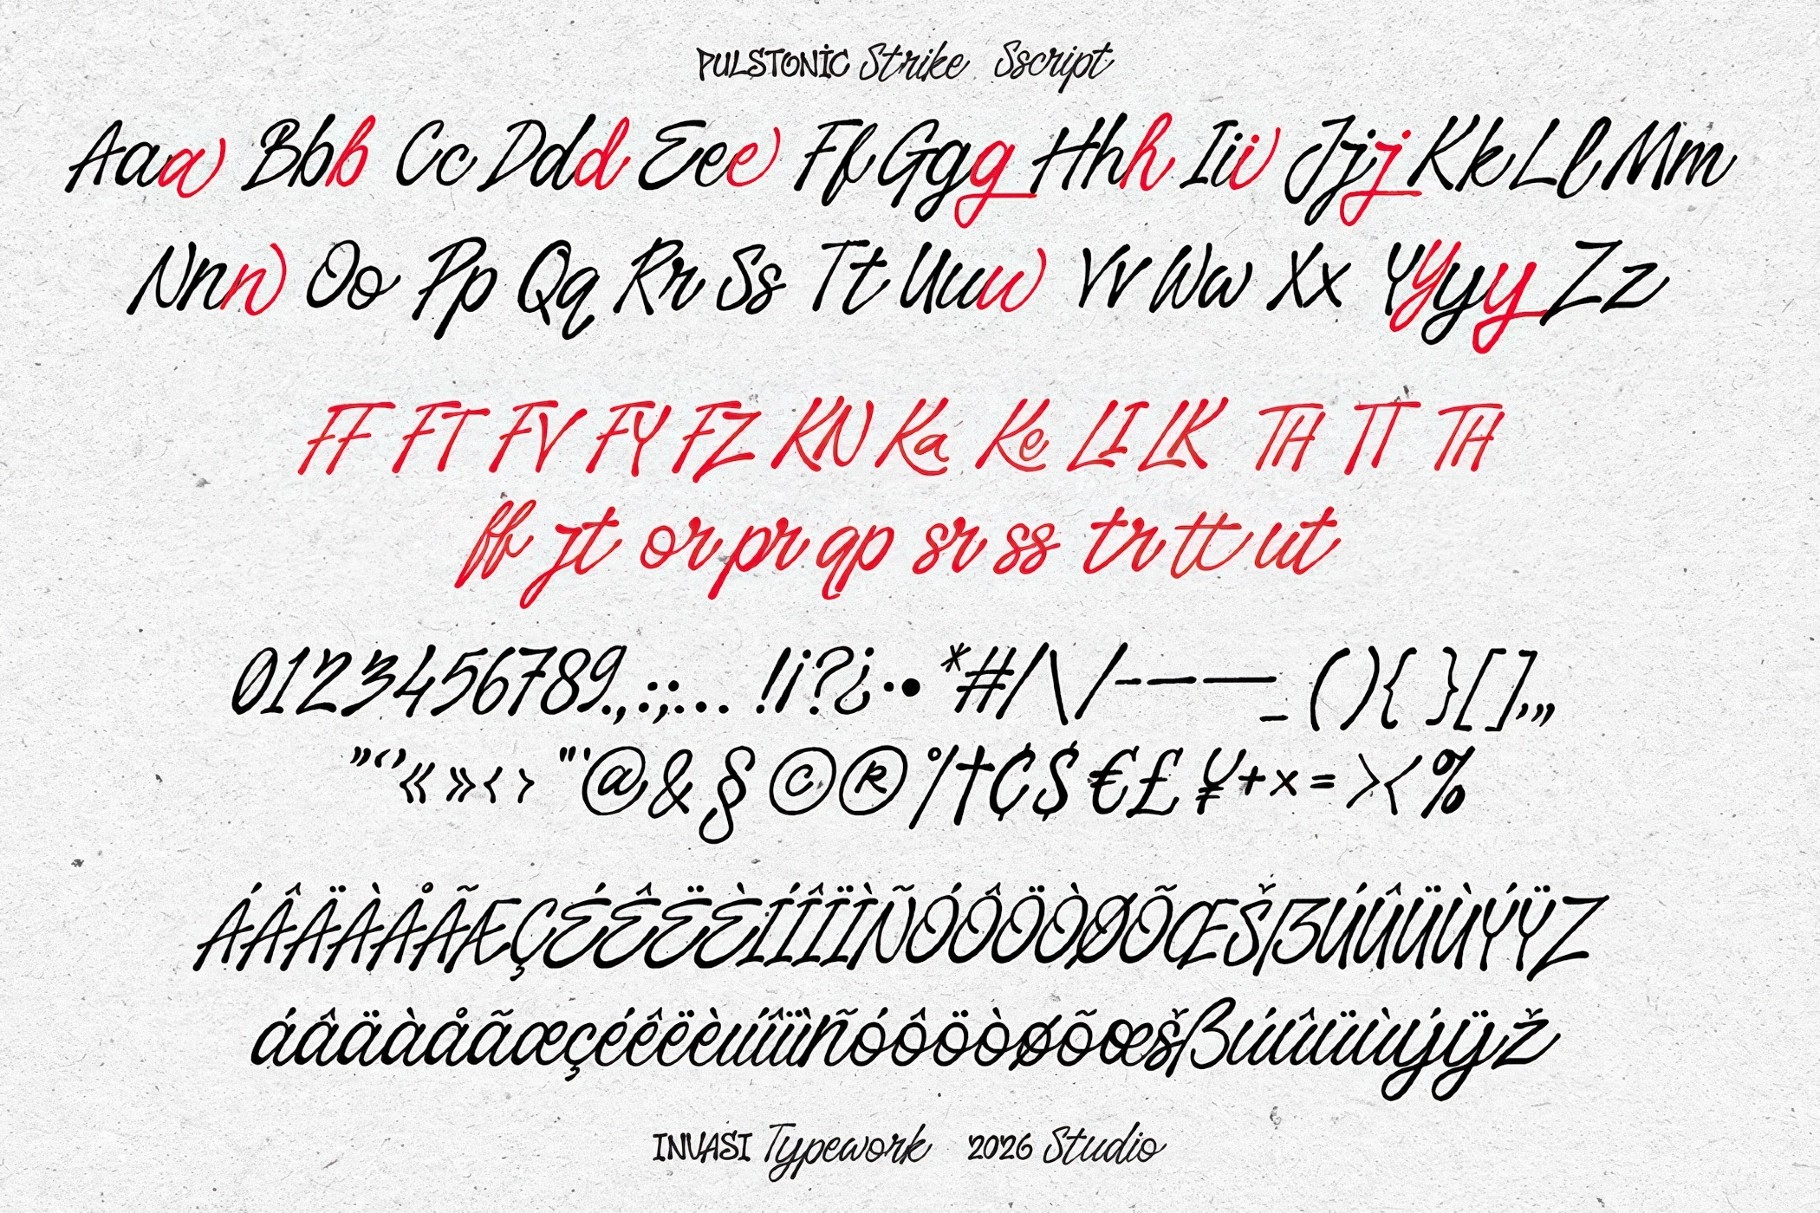 PULSTONIC Strike Sscript
Aaa Bbb Cc Ddd Eee Ff Ggg Hhh Iii Jjj Kk Ll Mm
Nnn Oo Pp Qq Rr Ss Tt Uuu Vv Ww Xx YYyy Zz
FF FT FV FY FZ KN Ka Ke LI LK TH TT TH
ff jt or pr qp sr ss tr tt ut
0123456789.,:;… !¡?¿·•*#/\/-–—_(){}[]‚„
”‘’«»‹›"'@&§©®°/†¢$€£¥+×=><%
ÁÂÄÀÅÃÆÇÉÊËÈÍÎÏÌÑÓÔÖÒØÕŒŠẞÚÛÜÙÝŸZ
áâäàåãæçéêëèıíîïìñóôöòøõœšßúûüùýÿž
INVASI Typework 2026 Studio